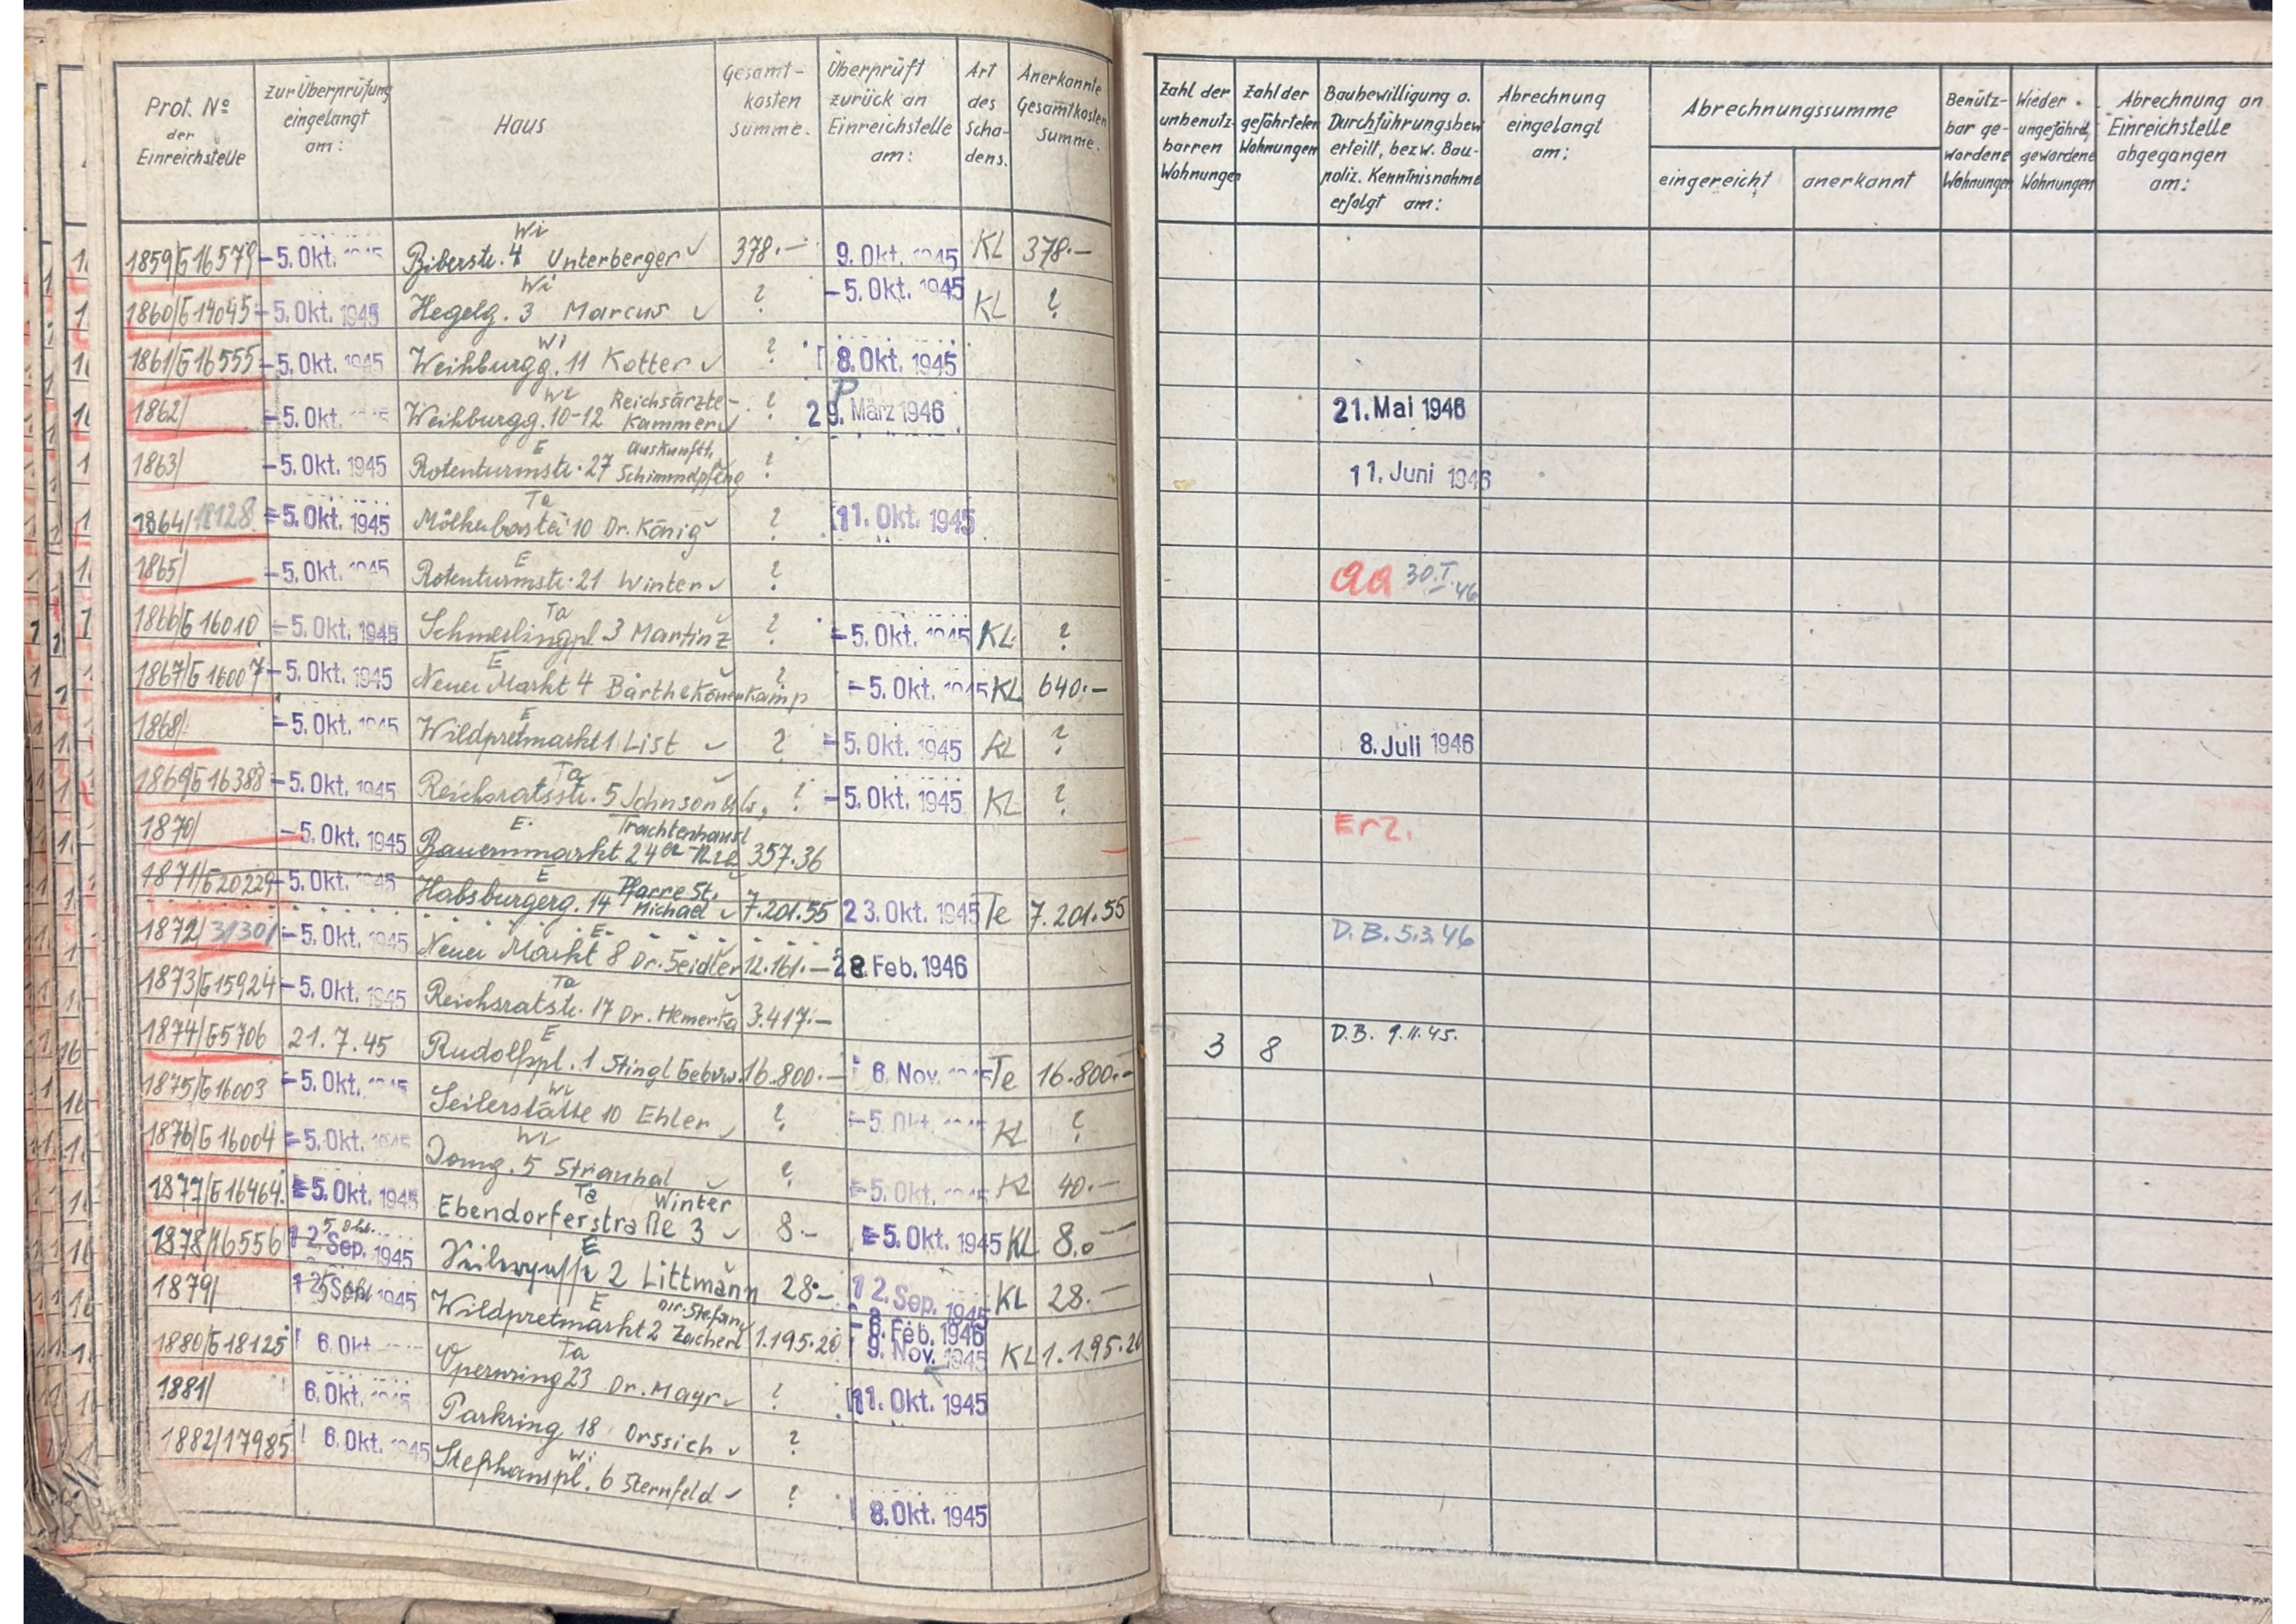 Prot. No der Einreichstelle | Zur Überprüfung eingelangt am: | Haus | Gesamt-kosten summe. | Überprüft zurück an Einreichstelle am: | Art des Scha-dens. | Anerkannte Gesamtkosten Summe. | Zahl der unbenutz-barren Wohnungen | Zahl der gefährteten Wohnungen | Baubewilligung o. Durchführungsbew. erteilt, bezw. Bau-poliz. Kenntnisnahme erfolgt am: | Abrechnung eingelangt am: | Abrechnungssumme eingereicht | anerkannt | Benütz-bar ge-wordene Wohnungen | Wieder ungefährd. gewordene Wohnungen | Abrechnung an Einreichstelle abgegangen am:
1859/G16579 | -5. Okt. 1945 | Wi Biberstr. 4 Unterberger ✓ | 378.— | 9. Okt. 1945 | KL | 378.—
1860/G14045 | -5. Okt. 1945 | Wi Hegelg. 3 Marcus ✓ | ? | -5. Okt. 1945 | KL | ?
1861/G16555 | -5. Okt. 1945 | Wi Weihburgg. 11 Kotter ✓ | ? | 8. Okt. 1945
1862/ | -5. Okt. 1945 | Wi Weihburgg. 10-12 Reichsärzte-Kammer ✓ | ? | P 29. März 1946 | 21. Mai 1946
1863/ | -5. Okt. 1945 | E Rotenturmstr. 27 Auskunftt. Schimmelpfeng | ? | 11. Juni 1946
1864/18128 | -5. Okt. 1945 | Ta Mölkerbastei 10 Dr. König ✓ | ? | 11. Okt. 1945
1865/ | -5. Okt. 1945 | E Rotenturmstr. 21 Winter ✓ | ? | aa 30.I.46
1866/G16010 | -5. Okt. 1945 | Ta Schmerlingpl. 3 Martinz ✓ | ? | -5. Okt. 1945 | KL | ?
1867/G16007 | -5. Okt. 1945 | E Neuer Markt 4 Barthe Könenkamp ✓ | ? | -5. Okt. 1945 | KL | 640.—
1868/ | -5. Okt. 1945 | E Wildpretmarkt 1 List ✓ | ? | -5. Okt. 1945 | KL | ? | 8. Juli 1946
1869/G16388 | -5. Okt. 1945 | Ta Reichsratsstr. 5 Johnson ✓ | ? | -5. Okt. 1945 | KL | ?
1870/ | -5. Okt. 1945 | E. Bauernmarkt 24 Trachtenhausl | 357.36 | Erz.
1871/G20229 | -5. Okt. 1945 | E Habsburgerg. 14 Pfarre St. Michael ✓ | 7.201.55 | 23. Okt. 1945 | Te | 7.201.55
1872/31301 | -5. Okt. 1945 | E. Neuer Markt 8 Dr. Seidler ✓ | 12.161.— | 28. Feb. 1946 | D.B. 5.3.46
1873/G15924 | -5. Okt. 1945 | Ta Reichsratstr. 17 Dr. Hemerka ✓ | 3.417.—
1874/G5706 | 21.7.45 | E Rudolfspl. 1 Stingl Gebvw. | 16.800.— | 6. Nov. 1945 | Te | 16.800.— | 3 | 8 | D.B. 9.11.45.
1875/G16003 | -5. Okt. 1945 | Wi Seilerstätte 10 Ehler ✓ | ? | -5. Okt. 1945 | KL | ?
1876/G16004 | -5. Okt. 1945 | Wi Domg. 5 Strauhal ✓ | ? | -5. Okt. 1945 | KL | 40.—
1877/G16464 | -5. Okt. 1945 | Ta Ebendorferstraße 3 Winter ✓ | 8.- | -5. Okt. 1945 | KL | 8.—
1878/16556 | 5. Okt. 12. Sep. 1945 | E 2 Littmann ✓ | 28.— | 12. Sep. 1945 | KL | 28.—
1879/ | 5. Okt. 12. Sep. 1945 | E Wildpretmarkt 2 Dir. Stefan Zacherl ✓ | 1.195.20 | -8. Feb. 1946 9. Nov. 1945 | KL | 1.195.20
1880/G18125 | 6. Okt. | Ta Opernring 23 Dr. Mayr ✓ | ? | 11. Okt. 1945
1881/ | 6. Okt. 1945 | Parkring 18 Orssich ✓ | ?
1882/17985 | 6. Okt. 1945 | Wi Stephanspl. 6 Sternfeld ✓ | ? | 8. Okt. 1945